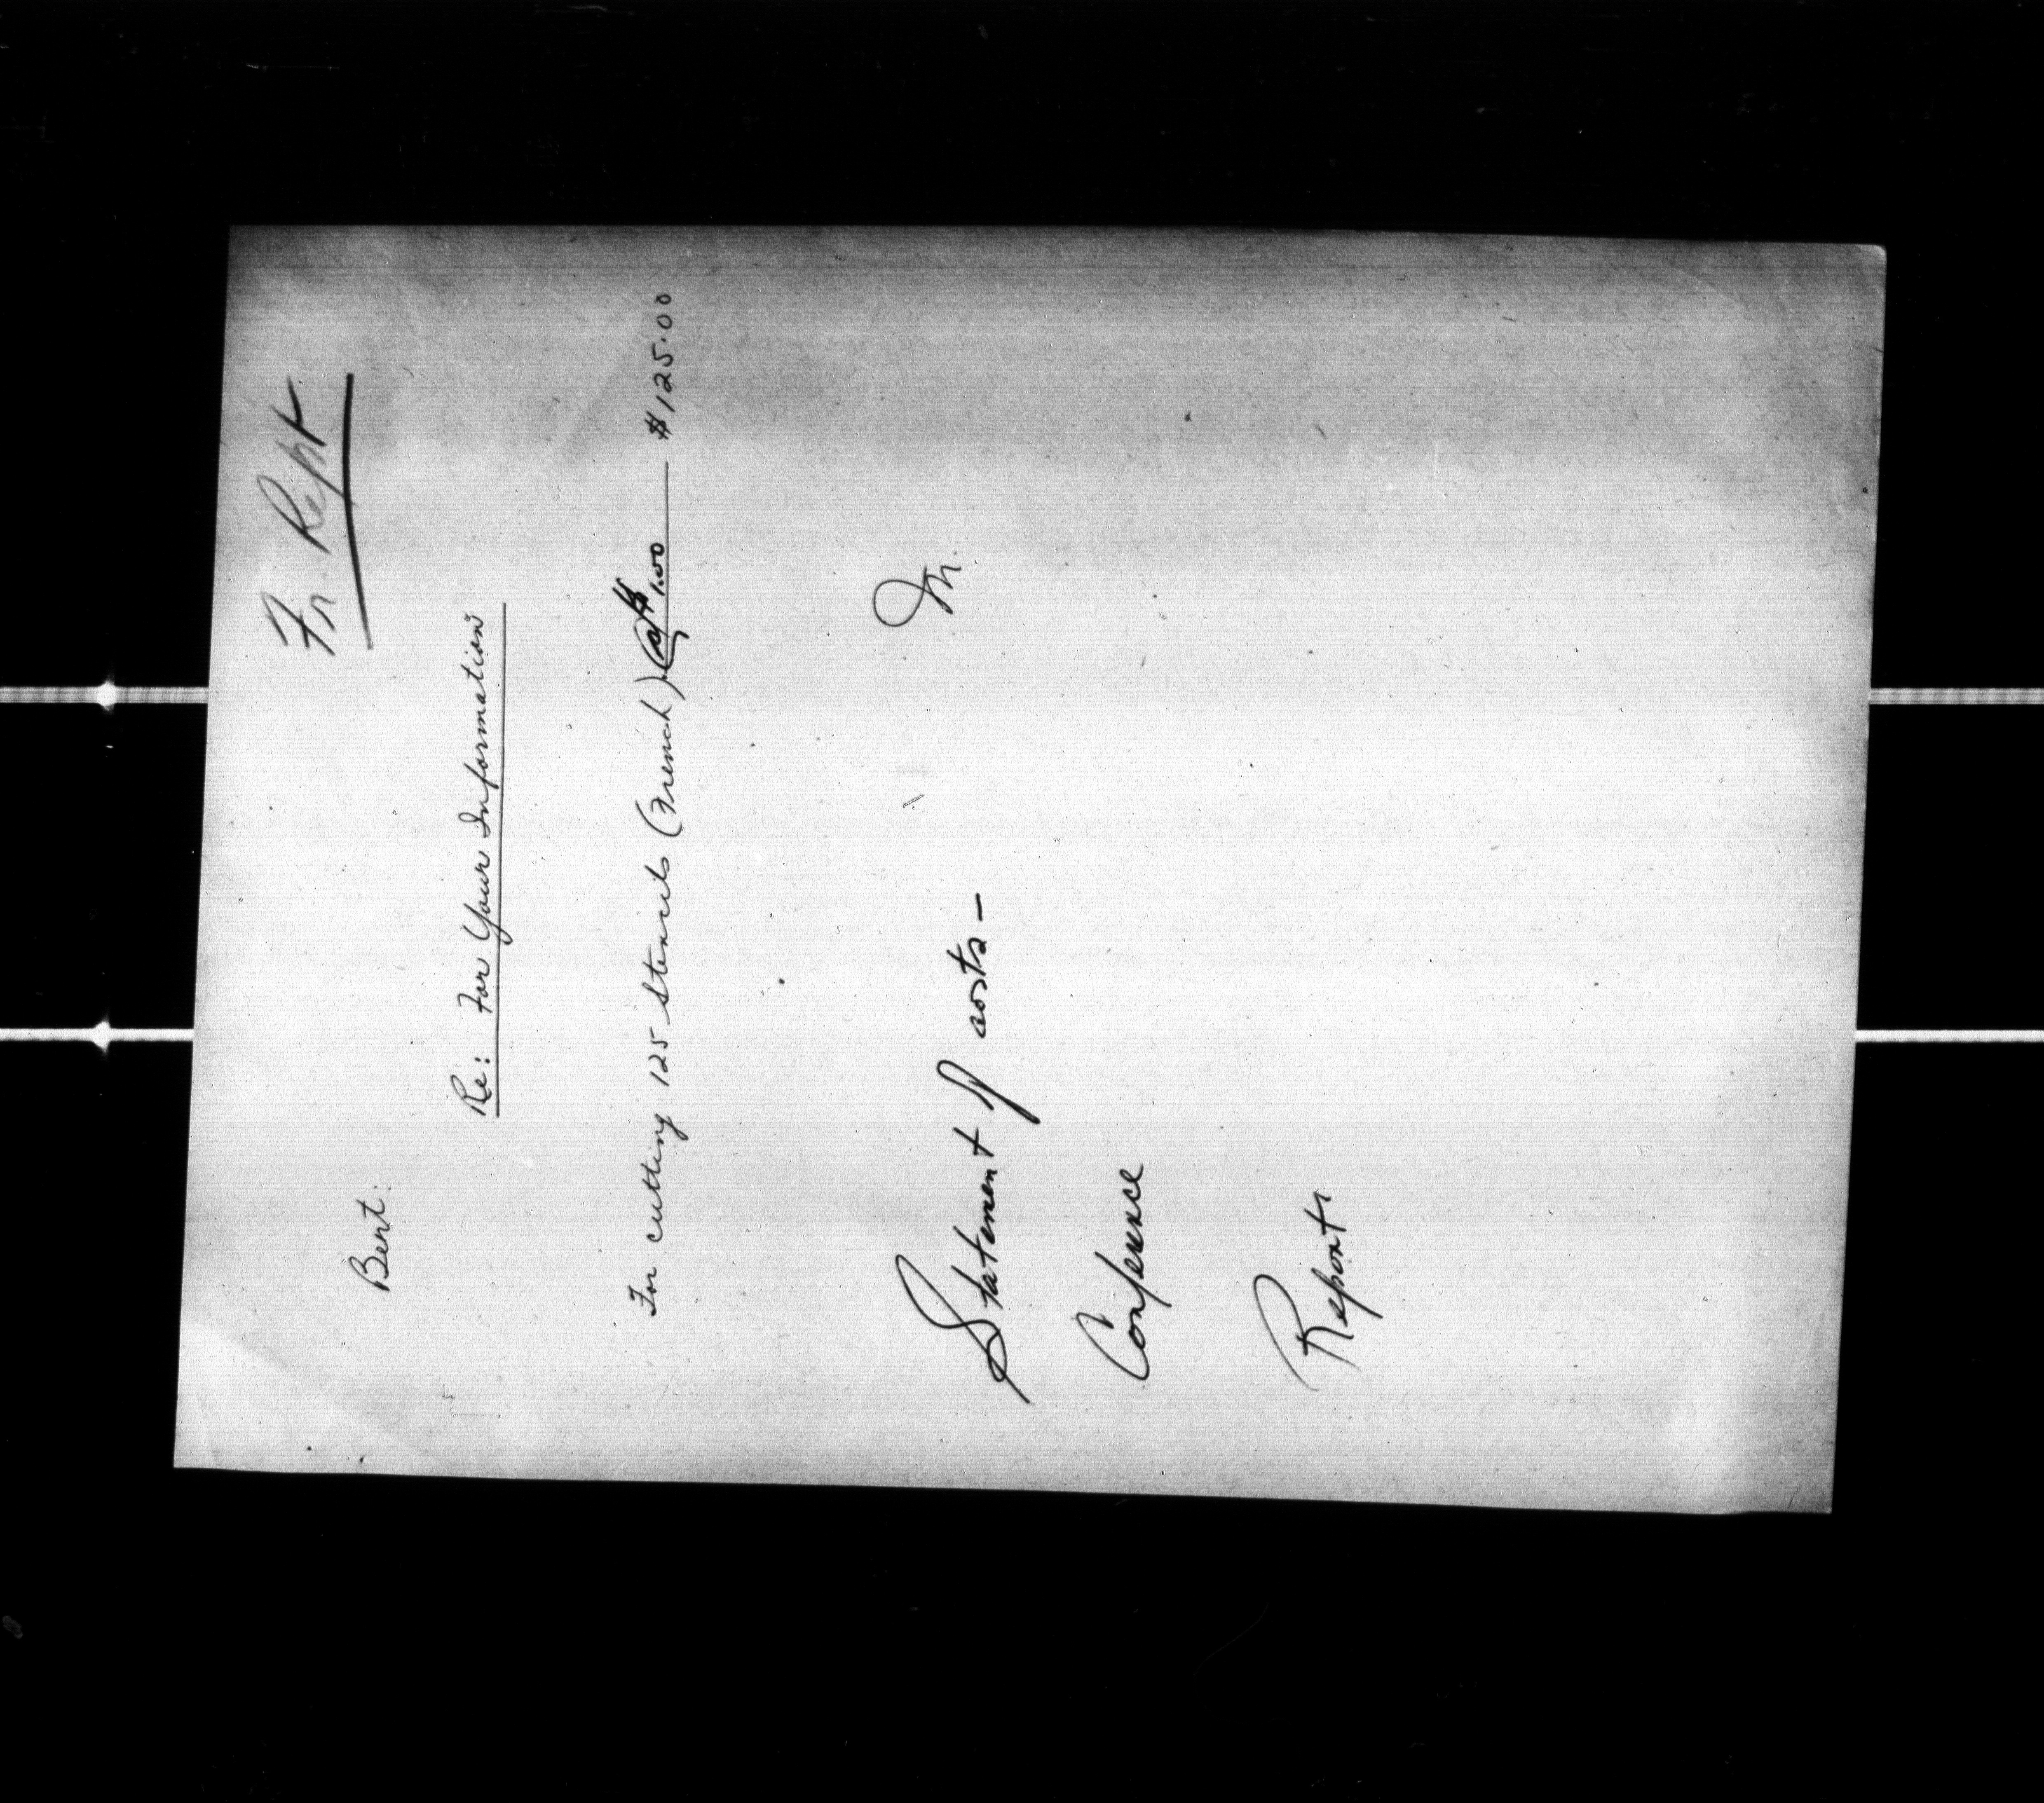 Fr. Rept
Bert:
Re: For Your Information
For cutting 125 Stencils (French) @ $1.00 — $125.00
M.
Statement of costs —
Conference
Reports